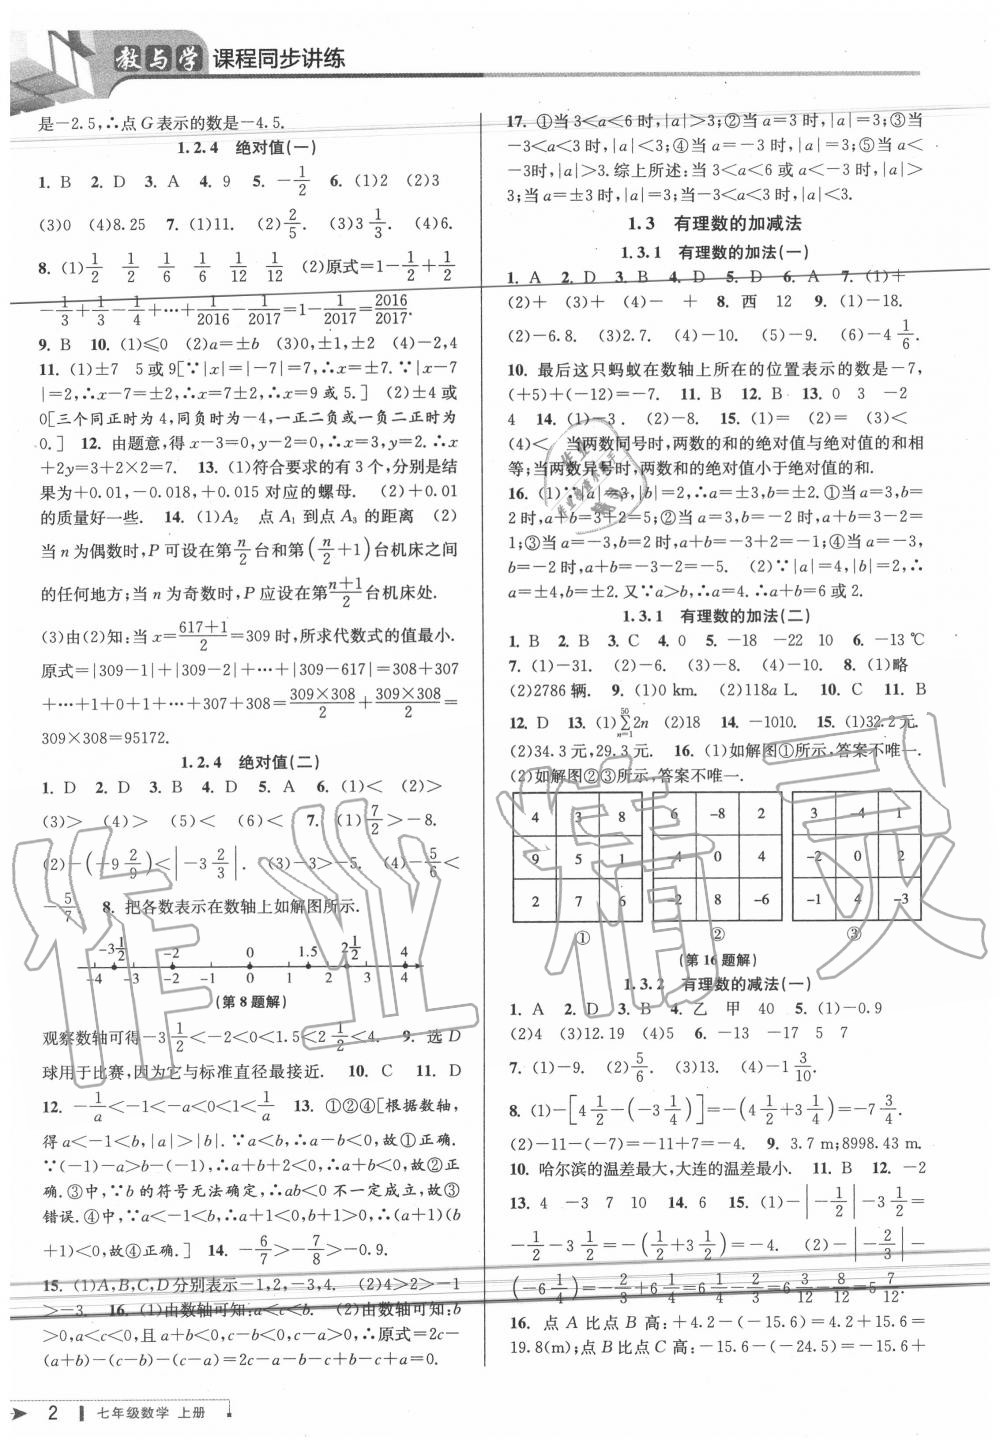 教与学 课程同步讲练
是-2.5,∴点G表示的数是-4.5.
1.2.4 绝对值(一)
1. B 2. D 3. A 4. 9 5. -1/2 6. (1)2 (2)3
(3)0 (4)8.25 7. (1)11. (2)2/5. (3)3 1/3. (4)6.
8. (1)1/2 1/2 1/6 1/6 1/12 1/12 (2)原式=1-1/2+1/2
-1/3+1/3-1/4+…+1/2016-1/2017=1-1/2017=2016/2017.
9. B 10. (1)≤0 (2)a=±b (3)0,±1,±2 (4)-2,4
11. (1)±7 5或9[∵|x|=|-7|=7,∴x=±7.∵|x-7
|=2,∴x-7=±2,∴x=7±2,∴x=9或5.] (2)±4或
0[三个同正时为4,同负时为-4,一正二负或一负二正时为
0.] 12. 由题意,得x-3=0,y-2=0,∴x=3,y=2.∴x
+2y=3+2×2=7. 13. (1)符合要求的有3个,分别是结
果为+0.01,-0.018,+0.015对应的螺母. (2)+0.01
的质量好一些. 14. (1)A₂ 点A₁到点A₃的距离 (2)
当n为偶数时,P可设在第n/2台和第(n/2+1)台机床之间
的任何地方;当n为奇数时,P应设在第(n+1)/2台机床处.
(3)由(2)知:当x=(617+1)/2=309时,所求代数式的值最小.
原式=|309-1|+|309-2|+…+|309-617|=308+307
+…+1+0+1+…+307+308=(309×308)/2+(309×308)/2=
309×308=95172.
1.2.4 绝对值(二)
1. D 2. D 3. B 4. D 5. A 6. (1)< (2)>
(3)> (4)> (5)< (6)< 7. (1)7/2>-8.
(2)-(-9 2/9)<|-3 2/3|. (3)-3>-5. (4)-5/6<
-5/7. 8. 把各数表示在数轴上如解图所示.
-3 1/2 -2 0 1.5 2 1/2 4
-4 -3 -2 -1 0 1 2 3 4
(第8题解)
观察数轴可得-3 1/2<-2<0<1.5<2 1/2<4. 9. 选D
球用于比赛,因为它与标准直径最接近. 10. C 11. D
12. -1/a<-1<-a<0<1<1/a 13. ①②④[根据数轴,
得a<-1<b,|a|>|b|.∵a<b,∴a-b<0,故①正确.
∵(-1)-a>b-(-1),∴a+b+2<0,∴a+b<0,故②正
确.③中,∵b的符号无法确定,∴ab<0不一定成立,故③
错误.④中,∵a<-1<b,∴a+1<0,b+1>0,∴(a+1)(b
+1)<0,故④正确.] 14. -6/7>-7/8>-0.9.
15. (1)A,B,C,D分别表示-1,2,-3,4. (2)4>2>-1
>-3. 16. (1)由数轴可知:a<c<b. (2)由数轴可知:b
>0,a<c<0,且a+b<0,c-b<0,c-a>0,∴原式=2c-
(a+b)-(c-b)-(c-a)=2c-a-b-c+b-c+a=0.
17. ①当3<a<6时,|a|>3;②当a=3时,|a|=3;③当
-3<a<3时,|a|<3;④当a=-3时,|a|=3;⑤当a<
-3时,|a|>3.综上所述:当3<a<6或a<-3时,|a|>
3;当a=±3时,|a|=3;当-3<a<3时,|a|<3.
1.3 有理数的加减法
1.3.1 有理数的加法(一)
1. A 2. D 3. B 4. D 5. D 6. A 7. (1)+
(2)+ (3)+ (4)- + 8. 西 12 9. (1)-18.
(2)-6.8. (3)2.7. (4)-10. (5)-9. (6)-4 1/6.
10. 最后这只蚂蚁在数轴上所在的位置表示的数是-7,
(+5)+(-12)=-7. 11. B 12. B 13. 0 3 -2
4 14. (1)-3. (2)-8. 15. (1)= (2)= (3)<
(4)< 当两数同号时,两数的和的绝对值与绝对值的和相
等;当两数异号时,两数和的绝对值小于绝对值的和.
16. (1)∵|a|=3,|b|=2,∴a=±3,b=±2.①当a=3,b=
2时,a+b=3+2=5;②当a=3,b=-2时,a+b=3-2=
1;③当a=-3,b=2时,a+b=-3+2=-1;④当a=-3,
b=-2时,a+b=-3-2=-5. (2)∵|a|=4,|b|=2,∴
a=±4,b=±2.又∵a>b,∴a=4.∴a+b=6或2.
1.3.1 有理数的加法(二)
1. B 2. B 3. C 4. 0 5. -18 -22 10 6. -13℃
7. (1)-31. (2)-6. (3)-8. (4)-10. 8. (1)略
(2)2786辆. 9. (1)0 km. (2)118a L. 10. C 11. B
12. D 13. (1)∑(n=1→50)2n (2)18 14. -1010. 15. (1)32.2元.
(2)34.3元,29.3元. 16. (1)如解图①所示,答案不唯一.
(2)如解图②③所示,答案不唯一.
4 3 8 6 -8 2 3 -4 1
9 5 1 -4 0 4 -2 0 2
2 7 6 -2 8 -6 -1 4 -3
① ② ③
(第16题解)
1.3.2 有理数的减法(一)
1. A 2. D 3. B 4. 乙 甲 40 5. (1)-0.9
(2)4 (3)12.19 (4)5 6. -13 -17 5 7
7. (1)-9. (2)5/6. (3)13. (4)-1 3/10.
8. (1)-[4 1/2-(-3 1/4)]=-(4 1/2+3 1/4)=-7 3/4.
(2)-11-(-7)=-11+7=-4. 9. 3.7 m;8998.43 m.
10. 哈尔滨的温差最大,大连的温差最小. 11. B 12. -2
13. 4 -3 7 10 14. 6 15. (1)-|-1/2|-3 1/2=
-1/2-3 1/2=-(1/2+3 1/2)=-4. (2)-|-2/3|-
(-6 1/4)=-2/3+6 1/4=6 3/12-8/12=5 7/12.
16. 点A比点B高:+4.2-(-15.6)=4.2+15.6=
19.8(m);点B比点C高:-15.6-(-24.5)=-15.6+
2 七年级数学 上册
作业精灵